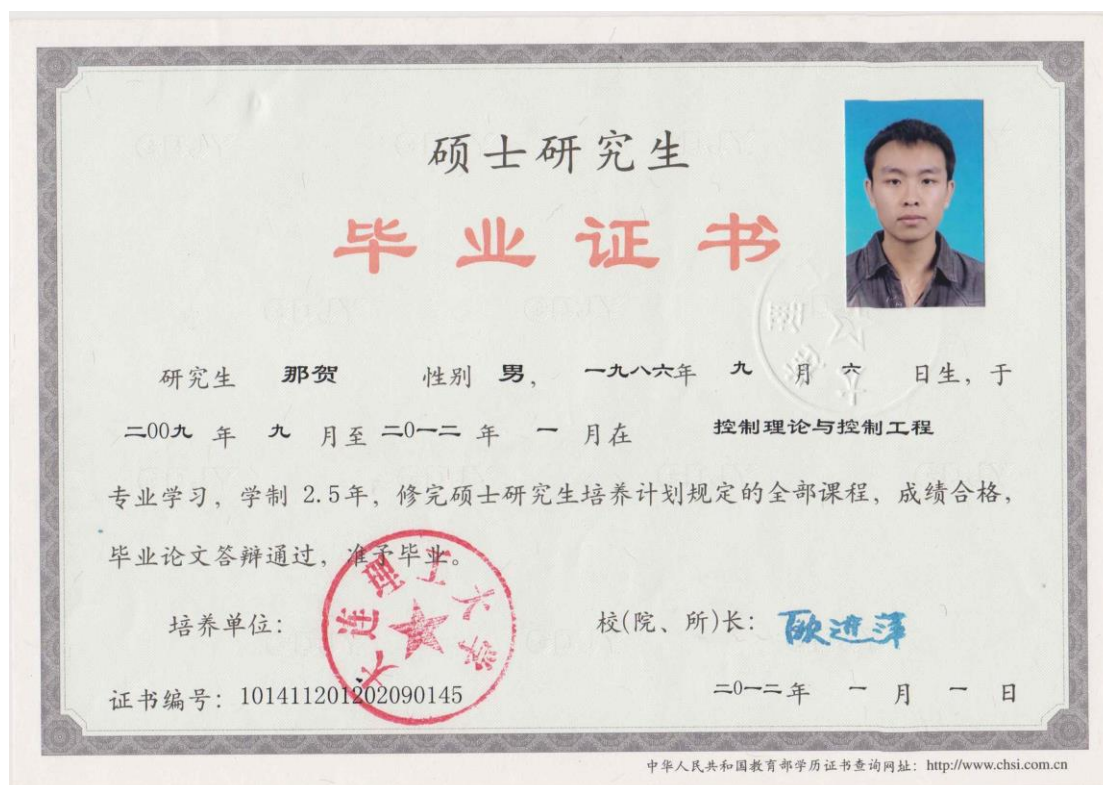 硕士研究生
毕业证书
研究生 那贺 性别 男, 一九八六年 九 月 六 日生, 于
二00九 年 九 月至 二0一二 年 一 月在 控制理论与控制工程
专业学习, 学制 2.5年, 修完硕士研究生培养计划规定的全部课程, 成绩合格,
毕业论文答辩通过, 准予毕业。
大连理工大学
培养单位: 校(院、所)长: 欧进萍
证书编号: 101411201202090145 二0一二年 一 月 一 日
中华人民共和国教育部学历证书查询网址: http://www.chsi.com.cn